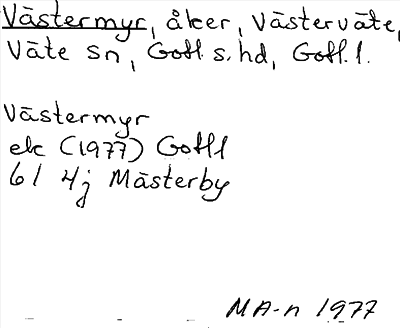 Västermyr, åker, Västerväte,
Väte sn, Gotl s. hd, Gotl. l.
Västermyr
ek (1977) Gotll
6I 4j Mästerby
MA-n 1977